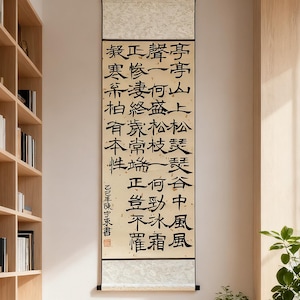 亭亭山上松瑟瑟谷中風風
聲一何盛松枝一何勁冰霜
正慘淒終歲常端正豈不羅
凝寒松柏有本性
乙巳年陳書